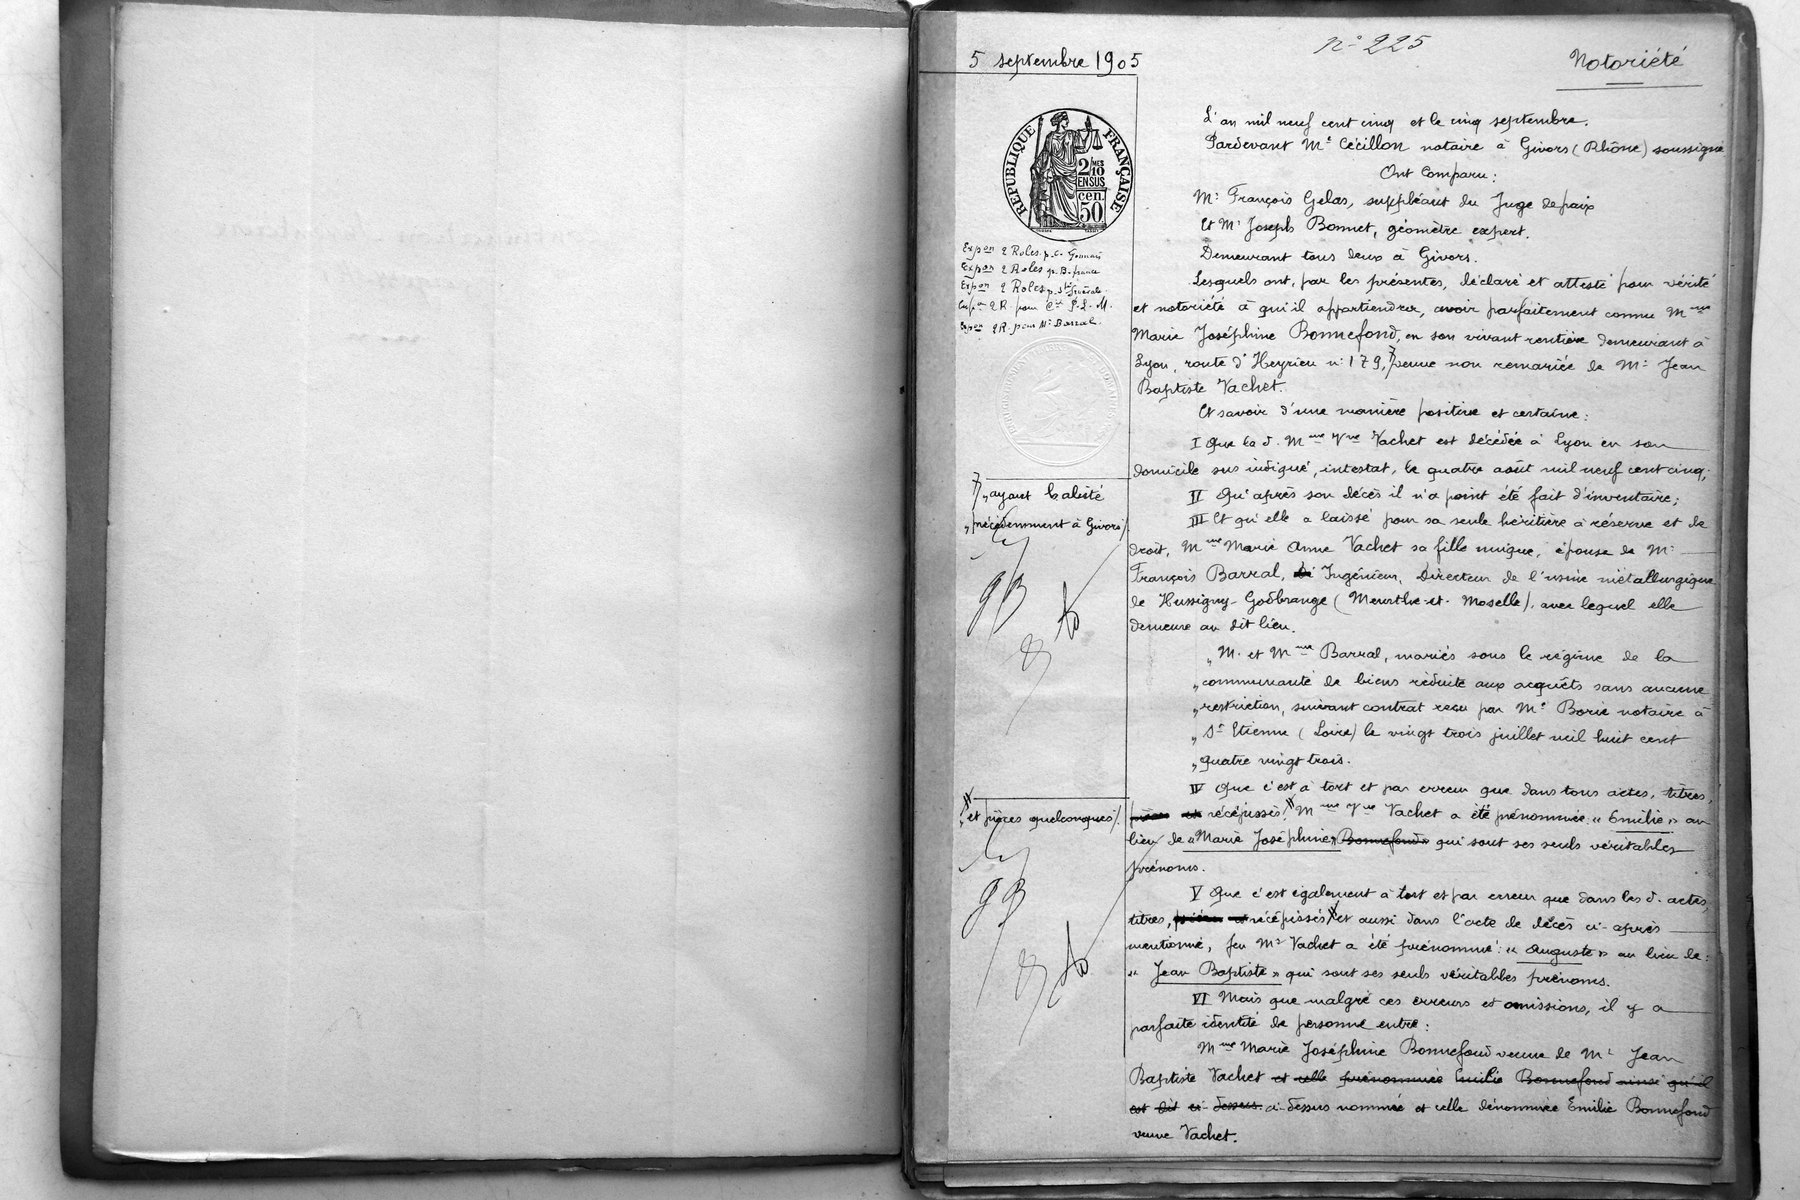 n° 225
5 septembre 1905
Notoriété
RÉPUBLIQUE FRANÇAISE
2/10 MES
EN SUS
cen.
50
Expon 2 Roles p. C.
Expon 2 Roles p. B. france
Expon 2 Roles p. Sté Générale
2 R. pour Cie P. L. M.
Expon 2 R. pour Mr Barral.
7/ „ayant habité
„précédemment à Givors/.
GB
„et pièces quelconques/.
GB
L'an mil neuf cent cinq et le cinq septembre.
Pardevant Me Cécillon notaire à Givors (Rhône) soussigné
Ont Comparu :
Mr François Gelas, suppléant du Juge de paix
Et Mr Joseph Bonnet, géomètre expert.
Demeurant tous deux à Givors.
Lesquels ont, par les présentes, déclaré et attesté pour vérité
et notoriété à qu'il appartiendra, avoir parfaitement connu Mme
Marie Joséphine Bonnefond, en son vivant rentière demeurant à
Lyon, route d'Heyrieu n° 179, 7/ veuve non remariée de Mr Jean
Baptiste Vachet.
Et savoir d'une manière positive et certaine :
I Que la d. Mme Vve Vachet est décédée à Lyon en son
domicile sus indiqué, intestat, le quatre août mil neuf cent cinq;
II Qu'après son décès il n'a point été fait d'inventaire;
III Et qu'elle a laissé pour sa seule héritière à réserve et de
droit, Mme Marie Anne Vachet sa fille unique, épouse de Mr
François Barral, Ingénieur, Directeur de l'usine métallurgique
de Hussigny-Godbrange (Meurthe-et-Moselle), avec lequel elle
demeure au dit lieu.
„ M. et Mme Barral, mariés sous le régime de la
„ communauté de biens réduite aux acquêts sans aucune
„ restriction, suivant contrat reçu par Me Borie notaire à
„ St Etienne (Loire) le vingt trois juillet mil huit cent
„ quatre vingt trois.
IV Que c'est à tort et par erreur que dans tous actes, titres,
pièces et récépissés, Mme Vve Vachet a été prénommée : « Emilie » au
lieu de « Marie Joséphine » Bonnefond » qui sont ses seuls véritables
prénoms.
V Que c'est également à tort et par erreur que dans les d. actes,
titres, pièces et récépissés, et aussi dans l'acte de décès ci-après
mentionné, feu Mr Vachet a été prénommé : « Auguste » au lieu de :
« Jean Baptiste » qui sont ses seuls véritables prénoms.
VI Mais que malgré ces erreurs et omissions, il y a
parfaite identité de personne entre :
Mme Marie Joséphine Bonnefond veuve de Mr Jean
Baptiste Vachet et celle prénommée Emilie Bonnefond ainsi qu'il
est dit ci-dessus ci-dessus nommée et celle dénommée Emilie Bonnefond
veuve Vachet.